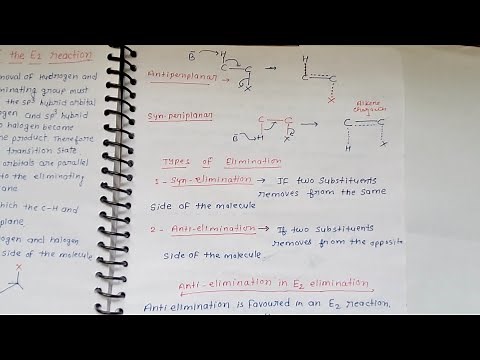 the E2 reaction
moval of Hydrogen and
minating group must
the sp3 hybrid orbital
ogen and sp3 hybrid
o halogen become
he product. Therefore
transition state
orbitals are parallel
to the eliminating
ane
which the C-H and
plane
ogen and halogen
side of the molecule
X
Antiperiplanar →
B H
C C
X
→
H
C C
X
Syn-periplanar
C C
B H X
→
Alkene
C C
H X
Types of Elimination
1 - Syn-elimination → If two substituents
removes from the same
side of the molecule
2 - Anti-elimination → If two substituents
removes from the opposite
side of the molecule
Anti-elimination in E2 elimination
Anti elimination is favoured in an E2 reaction,